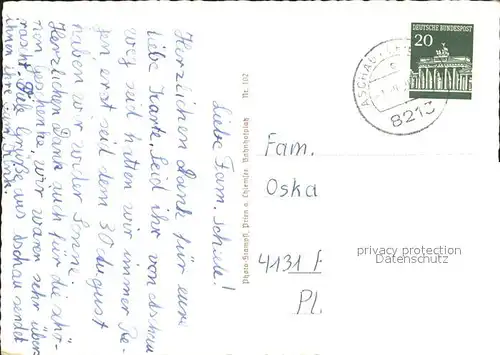 Liebe Fam. Schiele!
Herzlichen Dank für eure
liebe Karte. Seid ihr von Aschau
weg seid hatten wir immer Re-
gen, erst seid dem 30. August
haben wir wieder Sonne.
Herzlichen Dank auch für die schö-
nen Geschenke, wir waren sehr über-
rascht. Viele Grüße aus Aschau sendet
ihnen ihre
Photo-Stampfl, Prien a. Chiemsee, Bahnhofplatz Nr. 102
DEUTSCHE BUNDESPOST
20
ASCHAU
8213
Fam.
Oska
4131
Pl.
privacy protection
Datenschutz